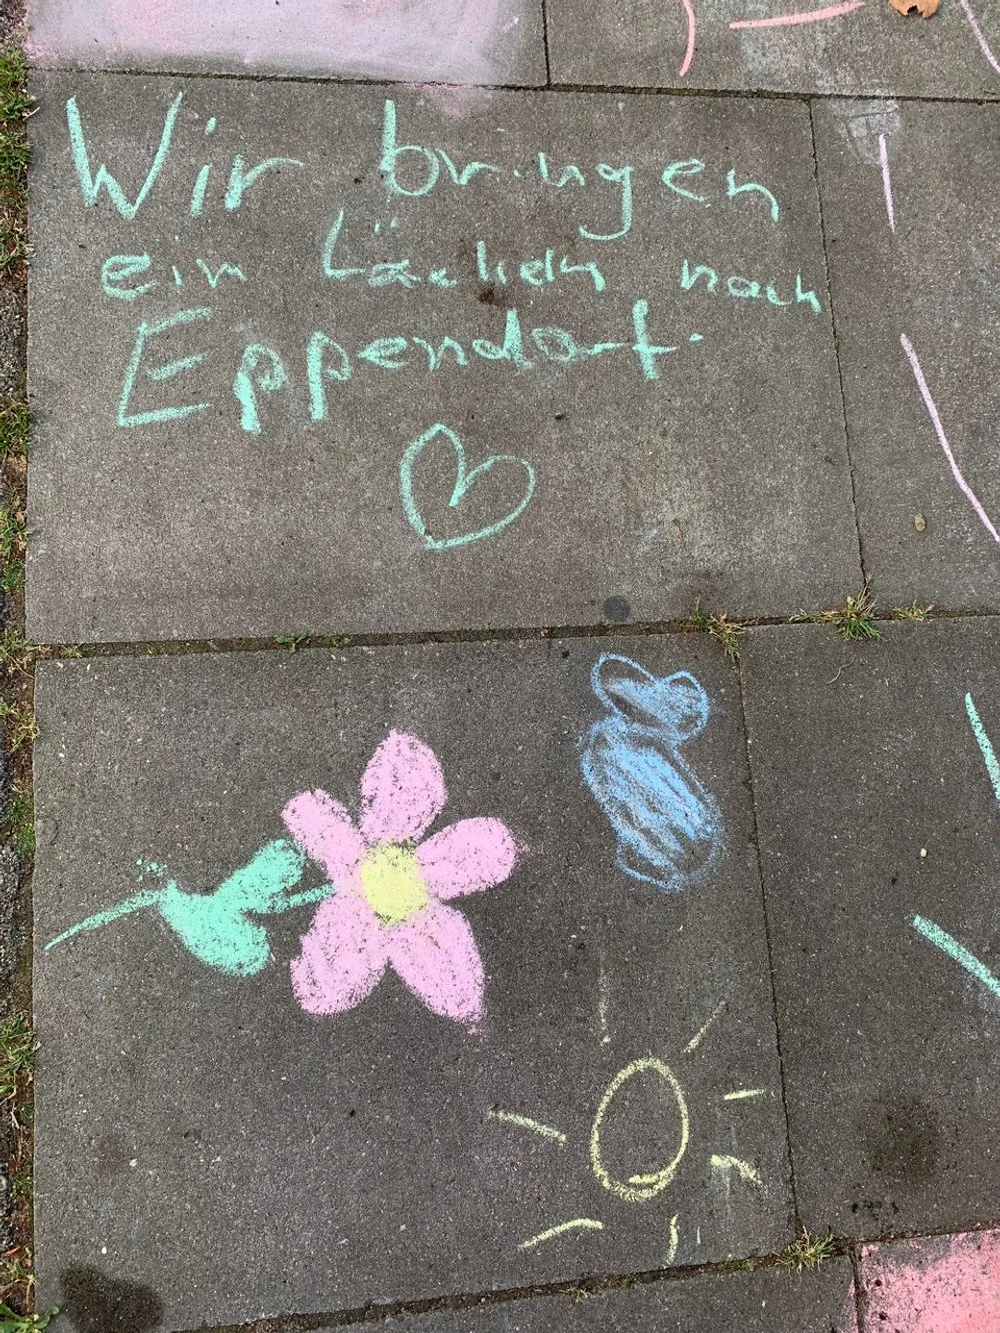 Wir bringen
ein Lächeln nach
Eppendorf.